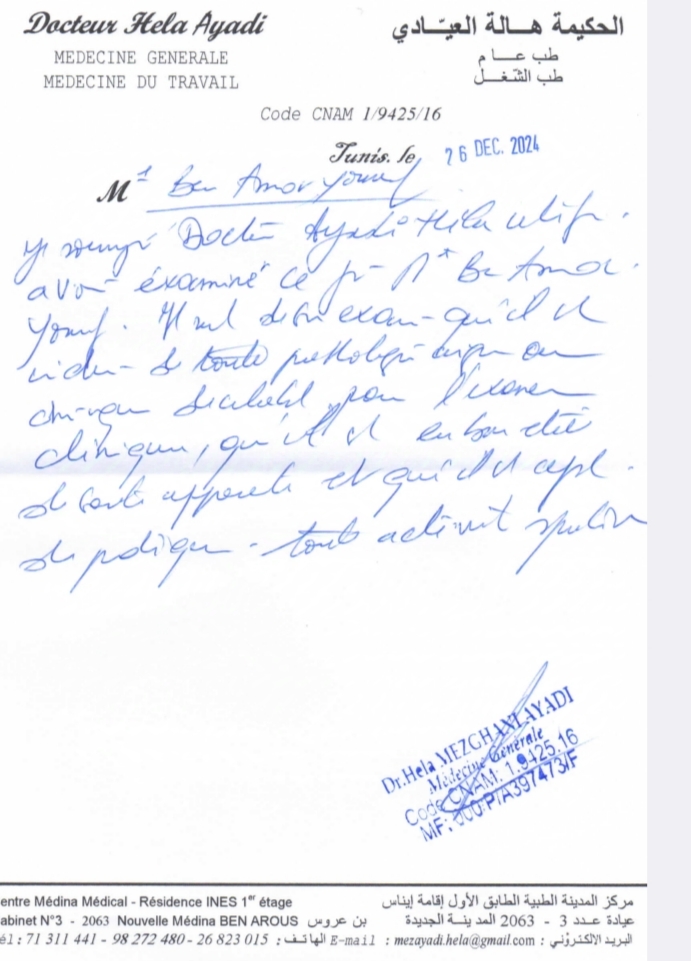 Docteur Hela Ayadi
الحكيمة هـالة العيّـادي
MEDECINE GENERALE
طب عـــام
MEDECINE DU TRAVAIL
طب الشّغـــل
Code CNAM 1/9425/16
Tunis. le, 26 DEC. 2024
Mr Ben Amor Yousuf
Je soussigné Docteur Ayadi Hela
avoir éxaminé ce jr Mr Ben Amor
Yousuf. Il de son exam- qu'il et
de toute pathologie ou
pour l'examen
clinique, qu'il et en bon état
de santé apparente et qu'il et apt
de pratiquer toute activité sportive
Dr.Hela MEZGHANI AYADI
Médecine Générale
Code CNAM: 1.9425.16
MF: 000.P/A397473/F
entre Médina Médical - Résidence INES 1er étage
مركز المدينة الطبية الطابق الأول إقامة إيناس
abinet N°3 - 2063 Nouvelle Médina BEN AROUS بن عروس
عيادة عـدد 3 - 2063 المدينـة الجديدة
él : 71 311 441 - 98 272 480 - 26 823 015 : الهاتـف
E-mail : mezayadi.hela@gmail.com : البريد الالكتروني